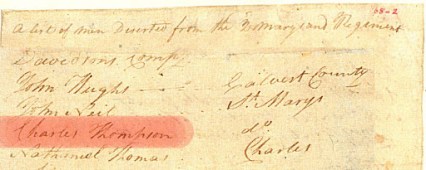 A list of men Deserted from the 3d Maryland Regiment
68-2
Davidsons Compy
John Hughs Calvert County
John Neil St. Marys
Charles Thompson do.
Nathaniel Thomas Charles